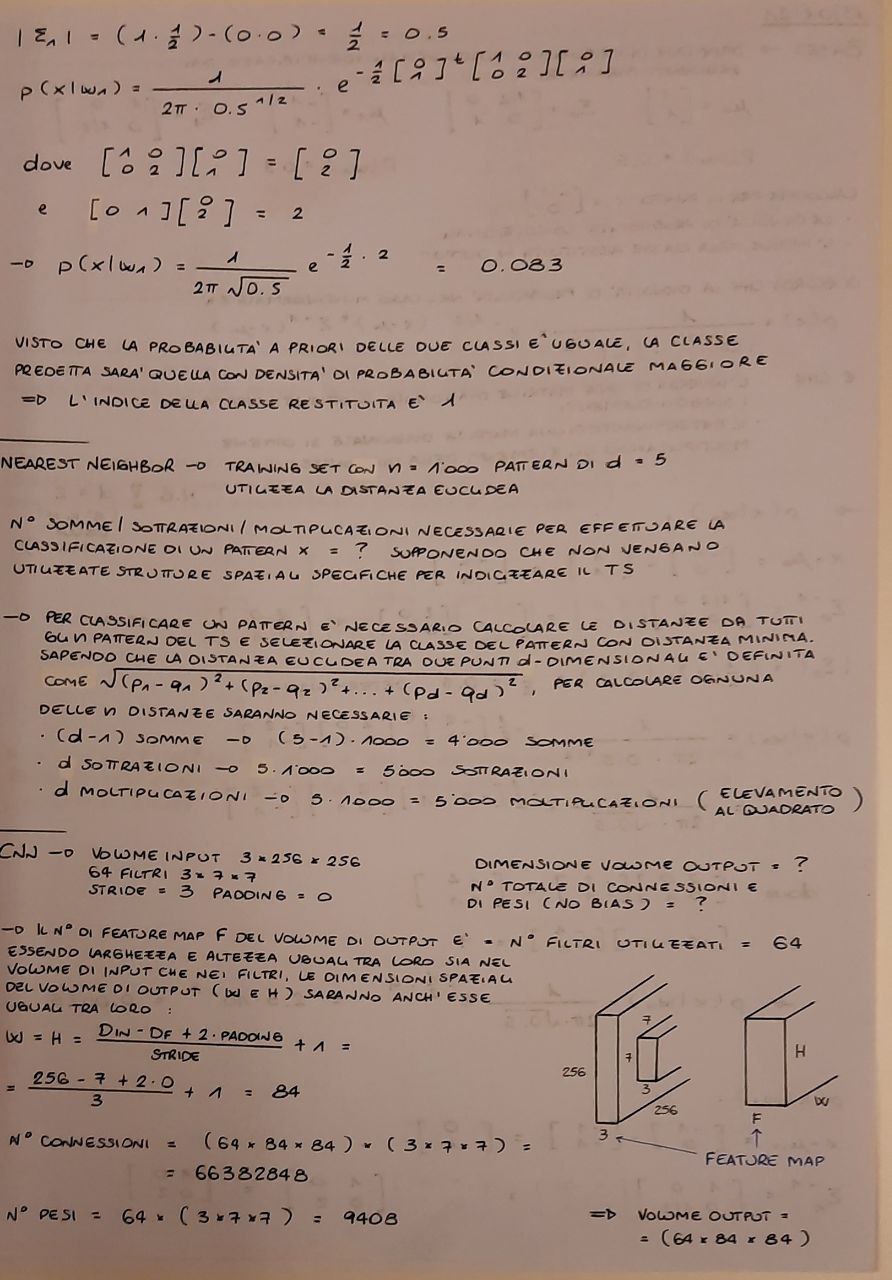 |Σ₁| = (1 · 1/2) - (0·0) = 1/2 = 0.5
p(x|w₁) = 1 / (2π · 0.5^1/2) · e^(-1/2 [0 1]^t [1 0 0 2] [0 1])
dove [1 0 0 2] [0 1] = [0 2]
e [0 1] [0 2] = 2
→ p(x|w₁) = 1 / (2π √0.5) e^(-1/2 · 2) = 0.083
VISTO CHE LA PROBABILITA' A PRIORI DELLE DUE CLASSI E' UGUALE, LA CLASSE
PREDETTA SARA' QUELLA CON DENSITA' DI PROBABILITA' CONDIZIONALE MAGGIORE
⇒ L'INDICE DELLA CLASSE RESTITUITA E' 1
NEAREST NEIGHBOR → TRAINING SET CON n = 1'000 PATTERN DI d = 5
UTILIZZA LA DISTANZA EUCLIDEA
N° SOMME/SOTTRAZIONI/MOLTIPLICAZIONI NECESSARIE PER EFFETTUARE LA
CLASSIFICAZIONE DI UN PATTERN X = ? SUPPONENDO CHE NON VENGANO
UTILIZZATE STRUTTURE SPAZIALI SPECIFICHE PER INDICIZZARE IL TS
→ PER CLASSIFICARE UN PATTERN E' NECESSARIO CALCOLARE LE DISTANZE DA TUTTI
GLI n PATTERN DEL TS E SELEZIONARE LA CLASSE DEL PATTERN CON DISTANZA MINIMA.
SAPENDO CHE LA DISTANZA EUCLIDEA TRA DUE PUNTI d-DIMENSIONALI E' DEFINITA
COME √((p₁-q₁)² + (p₂-q₂)² + ... + (pd-qd)²), PER CALCOLARE OGNUNA
DELLE n DISTANZE SARANNO NECESSARIE :
· (d-1) SOMME → (5-1)·1000 = 4'000 SOMME
· d SOTTRAZIONI → 5·1'000 = 5'000 SOTTRAZIONI
· d MOLTIPLICAZIONI → 5·1000 = 5'000 MOLTIPLICAZIONI (ELEVAMENTO
AL QUADRATO)
CNN → VOLUME INPUT 3×256×256
64 FILTRI 3×7×7
STRIDE = 3 PADDING = 0
DIMENSIONE VOLUME OUTPUT = ?
N° TOTALE DI CONNESSIONI E
DI PESI (NO BIAS) = ?
→ IL N° DI FEATURE MAP F DEL VOLUME DI OUTPUT E' = N° FILTRI UTILIZZATI = 64
ESSENDO LARGHEZZA E ALTEZZA UGUALI TRA LORO SIA NEL
VOLUME DI INPUT CHE NEI FILTRI, LE DIMENSIONI SPAZIALI
DEL VOLUME DI OUTPUT (W E H) SARANNO ANCH'ESSE
UGUALI TRA LORO :
W = H = (DIN - DF + 2·PADDING) / STRIDE + 1 =
= (256 - 7 + 2·0) / 3 + 1 = 84
7
7
3
256
256
3
H
W
F
FEATURE MAP
N° CONNESSIONI = (64×84×84) × (3×7×7) =
= 66382848
N° PESI = 64 × (3×7×7) = 9408
⇒ VOLUME OUTPUT =
= (64×84×84)